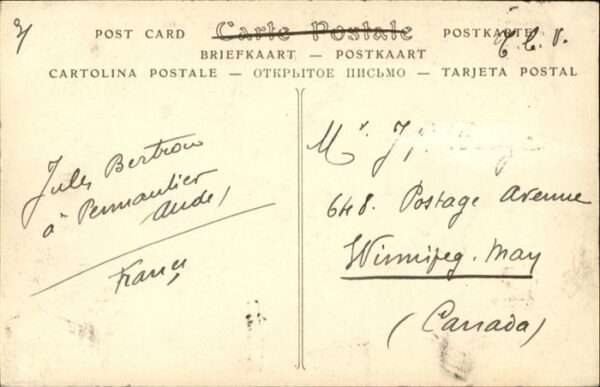 POST CARD Carte Postale POSTKARTE
T. C. V.
BRIEFKAART — POSTKAART
CARTOLINA POSTALE — ОТКРЫТОЕ ПИСЬМО — TARJETA POSTAL
Jules Bertrou
à Pennautier
Aude
France
Mr J
648. Postage Avenue
Winnipeg. May
(Canada)